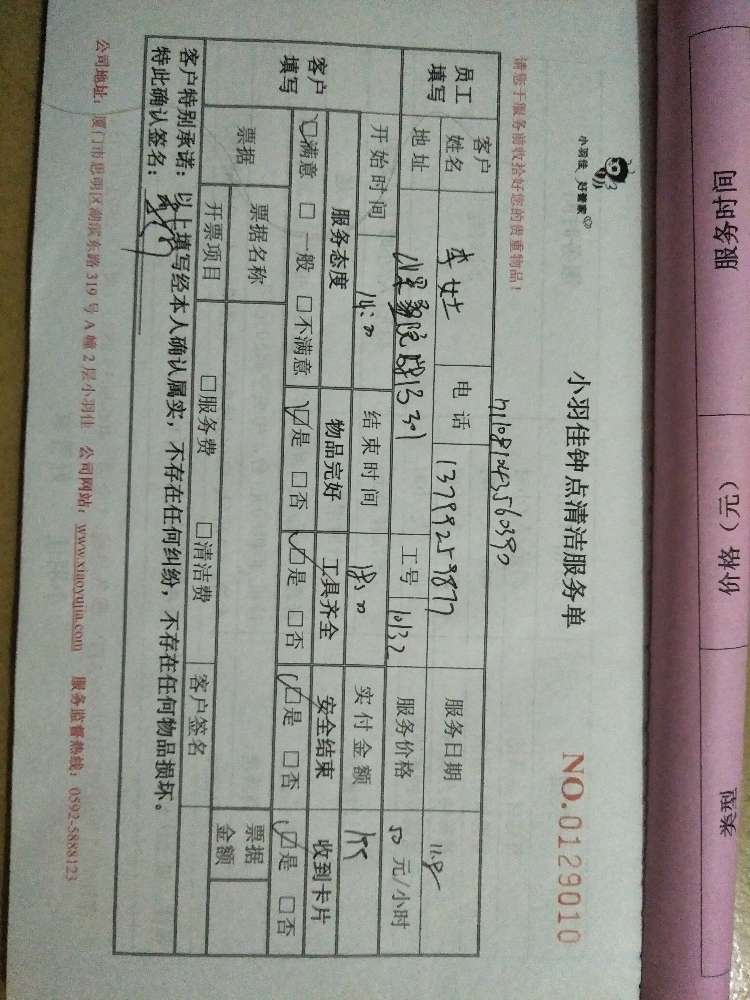 服务时间
价格（元）
类型
小羽佳 好管家
小羽佳钟点清洁服务单
NO.0129010
请您于服务前收拾好您的贵重物品！
员工填写
客户姓名
李女士
电话
13799259877
服务日期
11.8
地址
工号
10132
服务价格
50 元/小时
客户填写
开始时间
14:00
结束时间
18:00
实付金额
服务态度
物品完好
工具齐全
安全结束
收到卡片
☑满意 □一般 □不满意
☑是 □否
☑是 □否
☑是 □否
☑是 □否
票据
票据名称
票据金额
开票项目
□服务费 □清洁费
客户签名
客户特别承诺：以上填写经本人确认属实，不存在任何纠纷，不存在任何物品损坏。
特此确认签名：
公司地址：厦门市思明区湖滨东路 319 号 A 幢 2 层小羽佳 公司网站：www.xiaoyujia.com 服务监督热线：0592-5888123